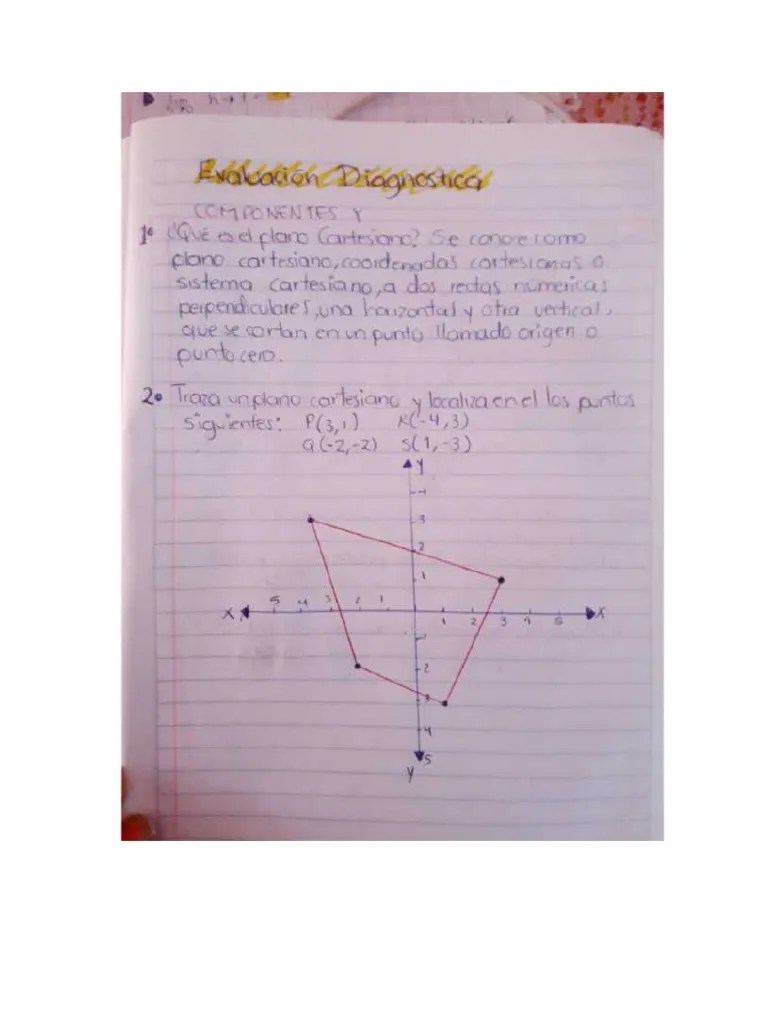 h→1-
Evaluación Diagnostica
COMPONENTES Y
1° ¿Qué es el plano Cartesiano? Se conoce como
plano cartesiano, coordenadas cartesianas o
sistema cartesiano, a dos rectas númericas
perpendiculares, una horizontal y otra vertical,
que se cortan en un punto llamado origen o
punto cero.
2° Traza un plano cartesiano y localiza en el los puntos
siguientes: P(3,1) R(-4,3)
Q(-2,-2) S(1,-3)
Y
4
3
2
1
5 4 3 2 1
X X
1 2 3 4 5
-1
-2
3
-4
5
Y